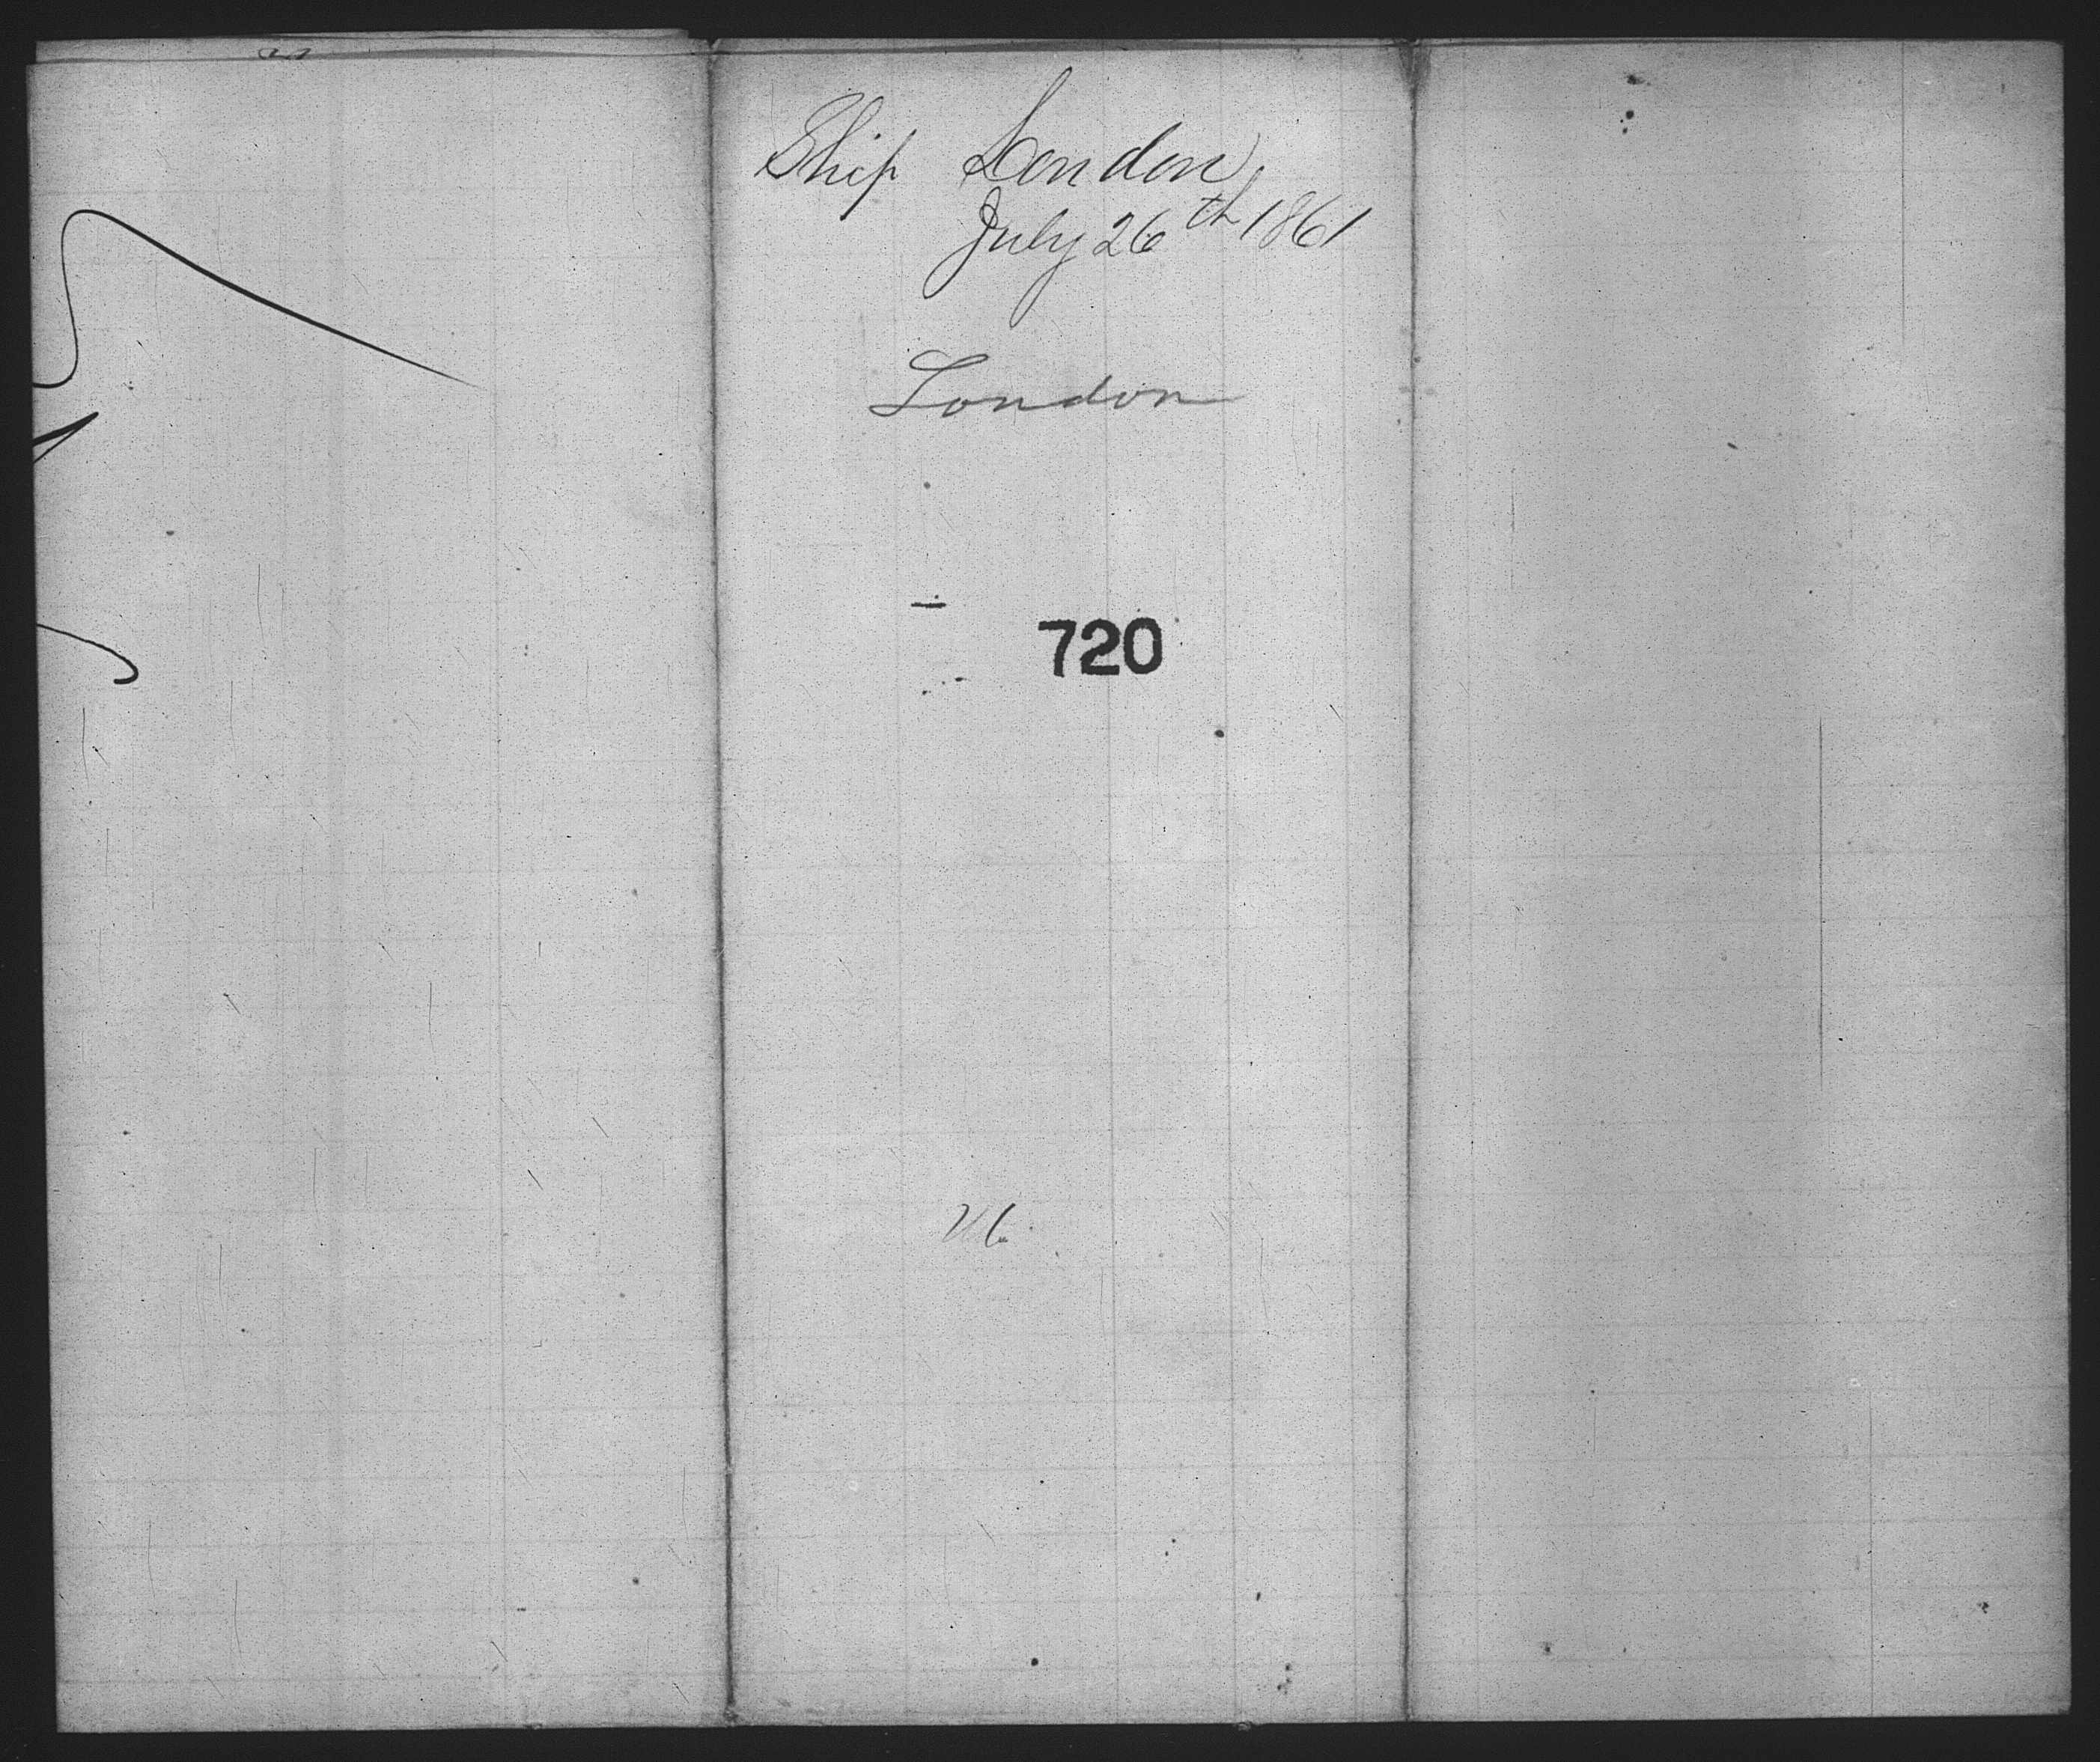 Ship London
July 26th 1861
London
720